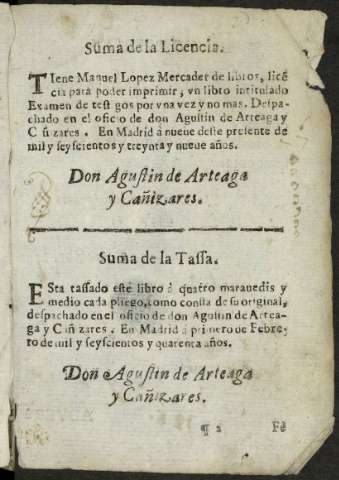 Suma de la Licencia.
TIene Manuel Lopez Mercader de libros, licẽ
cia para poder imprimir, vn libro intitulado
Examen de testigos por vna vez y no mas. Despa
chado en el oficio de don Agustin de Arteaga y
Cañizares. En Madrid à nueue deste presente de
mil y seyscientos y treynta y nueue años.
Don Agustin de Arteaga
y Cañizares.
Suma de la Tassa.
ESta tassado este libro à quatro marauedis y
medio cada pliego, como consta de su original,
despachado en el oficio de don Agustin de Artea-
ga y Cañizares. En Madrid à primero de Febre-
ro de mil y seyscientos y quarenta años.
Don Agustin de Arteaga
y Cañizares.
¶ 2 Fè